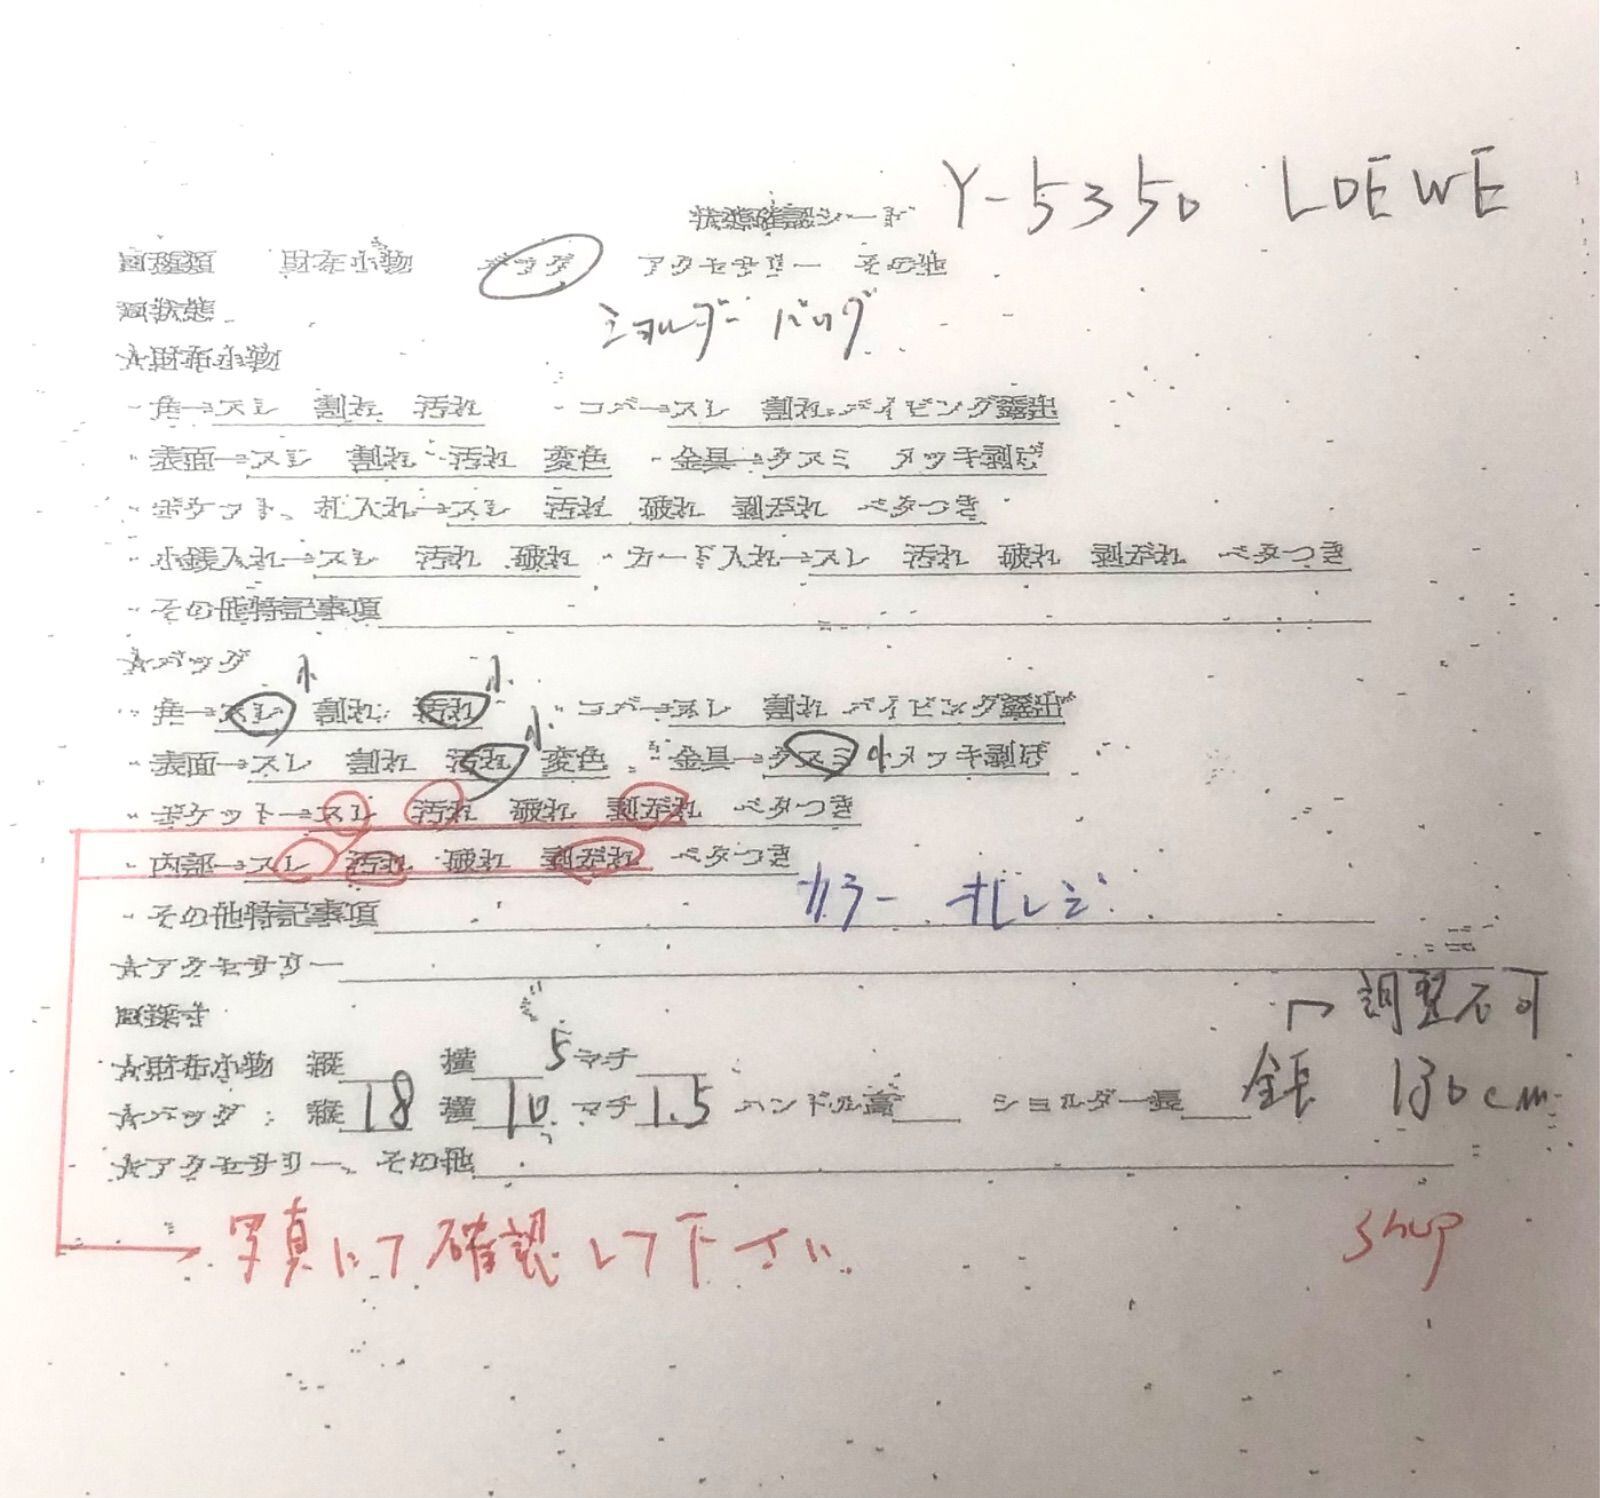 状態確認シート Y-5350 LOEWE
□種類 財布小物 バッグ アクセサリー その他
□状態 ショルダーバッグ
☆財布小物
・角→スレ 割れ 汚れ ・コバ→スレ 割れ パイピング露出
・表面→スレ 割れ 汚れ 変色 ・金具→クスミ メッキ剥げ
・ポケット、札入れ→スレ 汚れ 破れ 剥がれ ベタつき
・小銭入れ→スレ 汚れ 破れ ・カード入れ→スレ 汚れ 破れ 剥がれ ベタつき
・その他特記事項
☆バッグ
小 小
・角→スレ 割れ 汚れ ・コバ→スレ 割れ パイピング露出
小
・表面→スレ 割れ 汚れ 変色 ・金具→クスミ 小 メッキ剥げ
・ポケット→スレ 汚れ 破れ 剥がれ ベタつき
・内部→スレ 汚れ 破れ 剥がれ ベタつき
・その他特記事項 カラー オレンジ
☆アクセサリー
□採寸 調整不可
☆財布小物 縦 横 マチ
☆バッグ:縦18 横10.5 マチ1.5 ハンドル高 ショルダー長 全長 130cm
☆アクセサリー、その他
写真にて確認して下さい。
shop